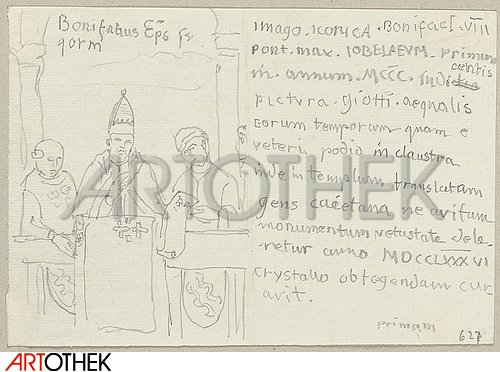 Bonifatius Eps ss.
qorm
imago. iconicA. Bonifaci. VIII
pont. max. IOBELAEUM. primum
in. annum. MCCC. indicentis
pictura. giotti. aequalis
eorum temporum quam e
veteri podio in claustra
inde in templum translatam
gens caietana ne avitum
monumentum vetustate dele-
retur anno MDCCLXXXVI
crystallo obtegendam cur-
avit.
primum
627
ARTOTHEK
ARTOTHEK